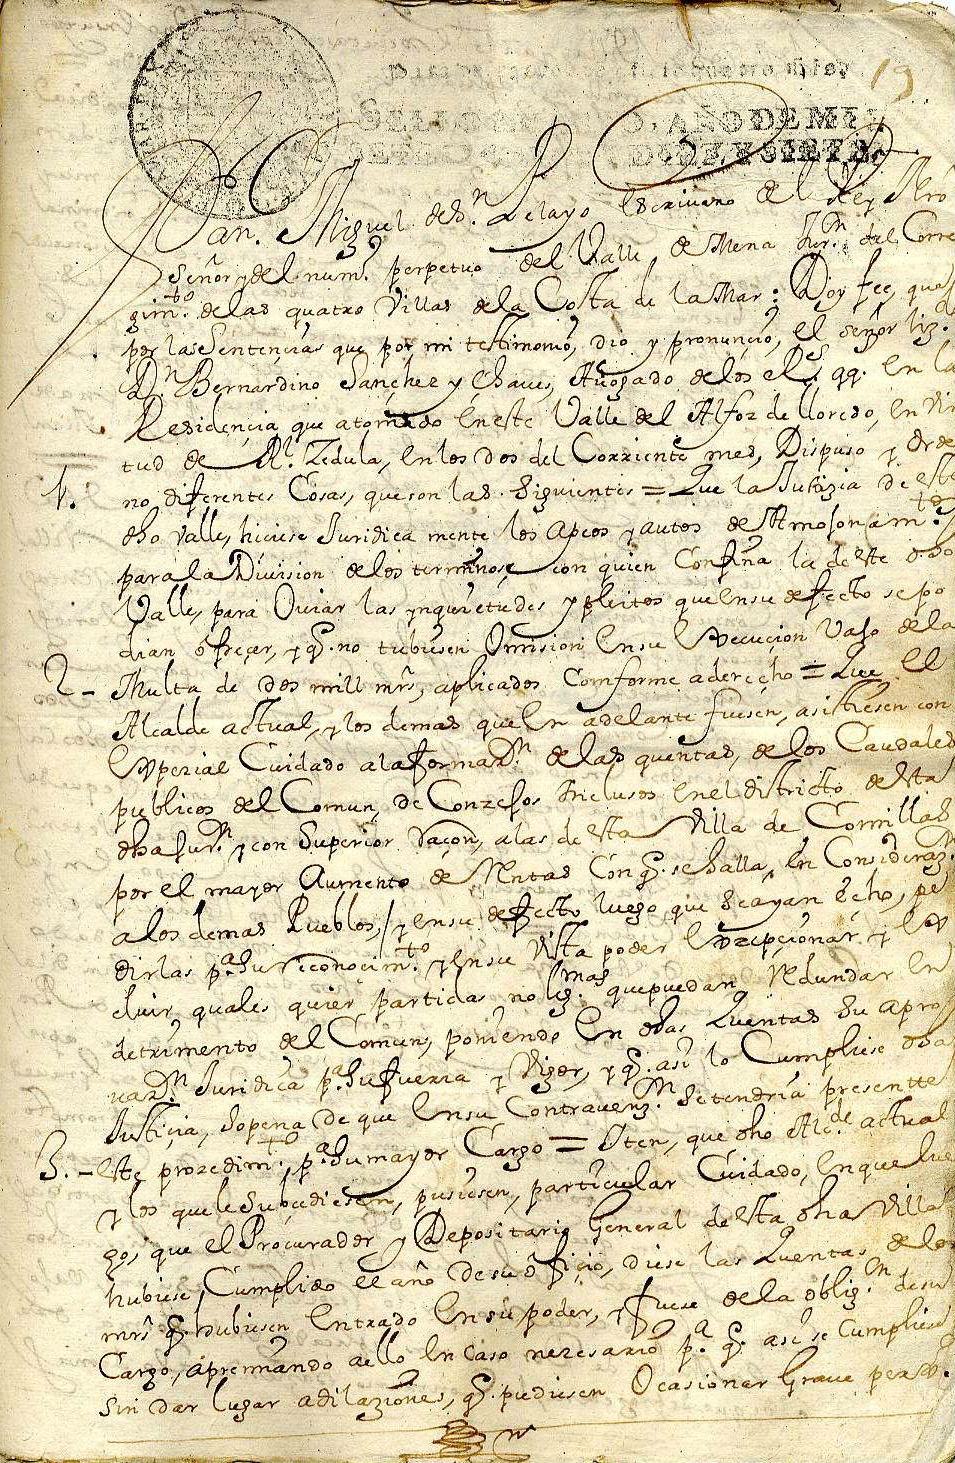 19
SELLO QVARTO, AÑO DE MIL
SETECIENTOS DIEZ Y SIETE.
Juan. Miguel de Sn. Pelayo Escrivano del Rey Nro
señor y del num.º perpetuo del Valle de Mena Jur.on del Corre
gim.to de las quatro Villas de la Costa de la Mar: Doy fee, que
por las Sentençias que por mi testimonio, dio y pronunçió, el señor liz.do
Dn Bernardino Sançhez y Chaves, Avogado de los Rs. qq. en la
Residençia que a tomado En este Valle del Alfoz de lloredo, en vir
tud de Rl. Zedula, en los dos del Corriente mes, Dispuso y orde
1. no diferentes Cosas, que son las siguientes = Que la Justizia de este
dho Valle, hiciese Juridica mente los apeos y autos de Amojonam.tos
para la Division de los terminos, con quien Confina la de este dho
Valle, para Oviar las ynquietudes y pleitos que en su defecto se po
dian ofreçer, y q. no tubiesen Omision En su Execuçion Vajo de la
2 - Multa de dos mill mrs, aplicados Comforme a derecho = Que El
Alcalde actual, y los demas que En adelante fuesen, asistiesen con
Espezial Cuidado a la formaz.n de las quentas, de los Caudales
publicos del Comun, de Conzejos Inclusos En el districto de esta
dha Jur.n y con Superior Raçon, a las de esta Villa de Comillas
por el mayor Aumento de Rentas Con q. se halla, En Consideraz.n
a los demas Pueblos, / y en su defecto luego que se ayan echo, pe
dirlas p.a su reconocim.to y En su Vista poder Exzepçionar y Ex
cluir quales quier partidas no lix.mas que puedan Redundar En
detrimento del Comun, poniendo En dhas Quentas su apro
vaz.n Juridica p.a su fuerza y Vigor, y q. asi lo Cumpliese dha
Justiçia, sopena de que En su Contravenz.n se tendria presentte
3. - este prozedim.to, p.a su mayor Cargo = Iten, que dho Alc.de actual
y los que le subçediesen, pusiesen, particular Cuidado, En que lue
go, que el Procurador y Depositario General de esta dha Villa
hubiese Cumplido el año de su ofiçio, diese las Quentas de los
mrs q. hubiesen Entrado En su poder, y fuese de la oblig.n de su
Cargo, apremiando a ello En caso nezesario p.a q. asi se Cumpliese
sin dar lugar a dilaziones, q. pudiesen Ocasionar Grave perxº.